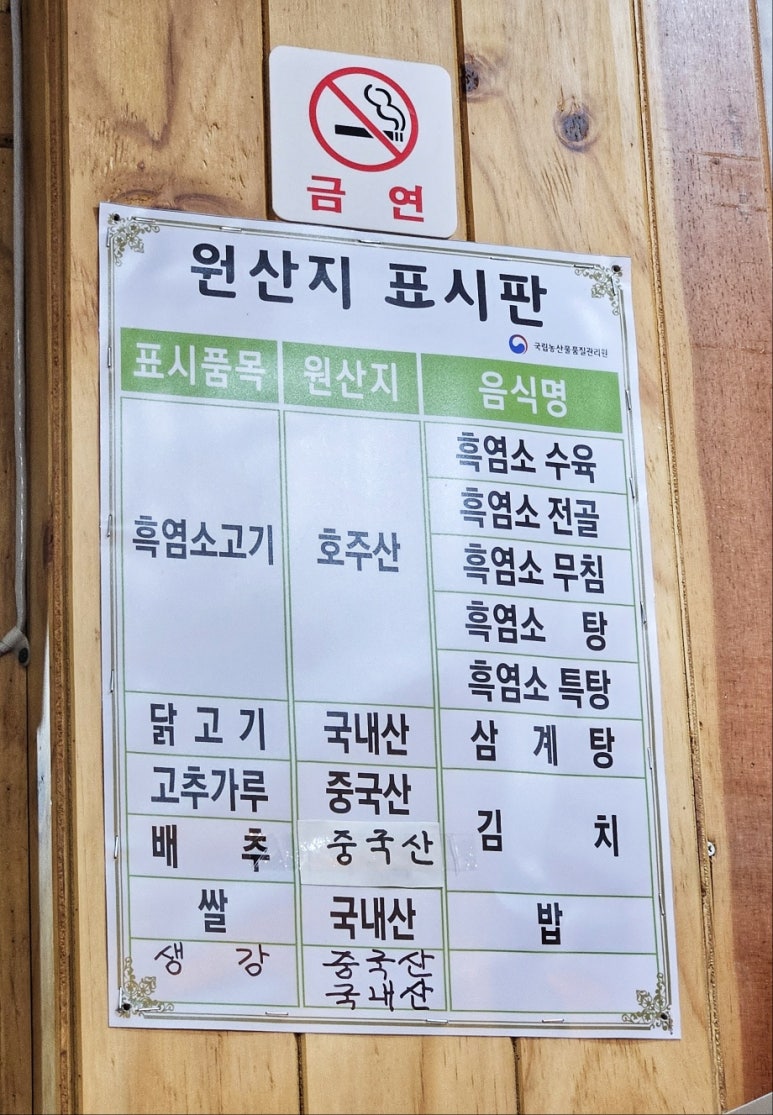 금 연
원산지 표시판
국립농산물품질관리원
표시품목 원산지 음식명
흑염소고기 호주산 흑염소 수육
흑염소 전골
흑염소 무침
흑염소 탕
흑염소 특탕
닭 고 기 국내산 삼 계 탕
고추가루 중국산 김 치
배 추 중국산
쌀 국내산 밥
생 강 중국산
국내산